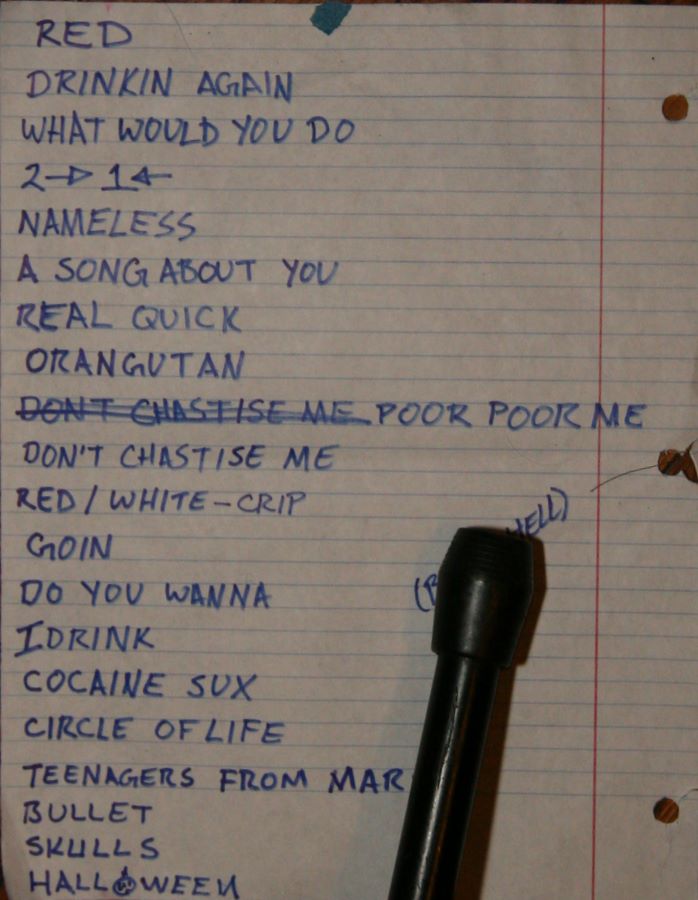 RED
DRINKIN AGAIN
WHAT WOULD YOU DO
2→ 1←
NAMELESS
A SONG ABOUT YOU
REAL QUICK
ORANGUTAN
DON'T CHASTISE ME POOR POOR ME
DON'T CHASTISE ME
RED/WHITE-CRIP
GOIN
DO YOU WANNA
I DRINK
COCAINE SUX
CIRCLE OF LIFE
TEENAGERS FROM MAR
BULLET
SKULLS
HALLOWEEN